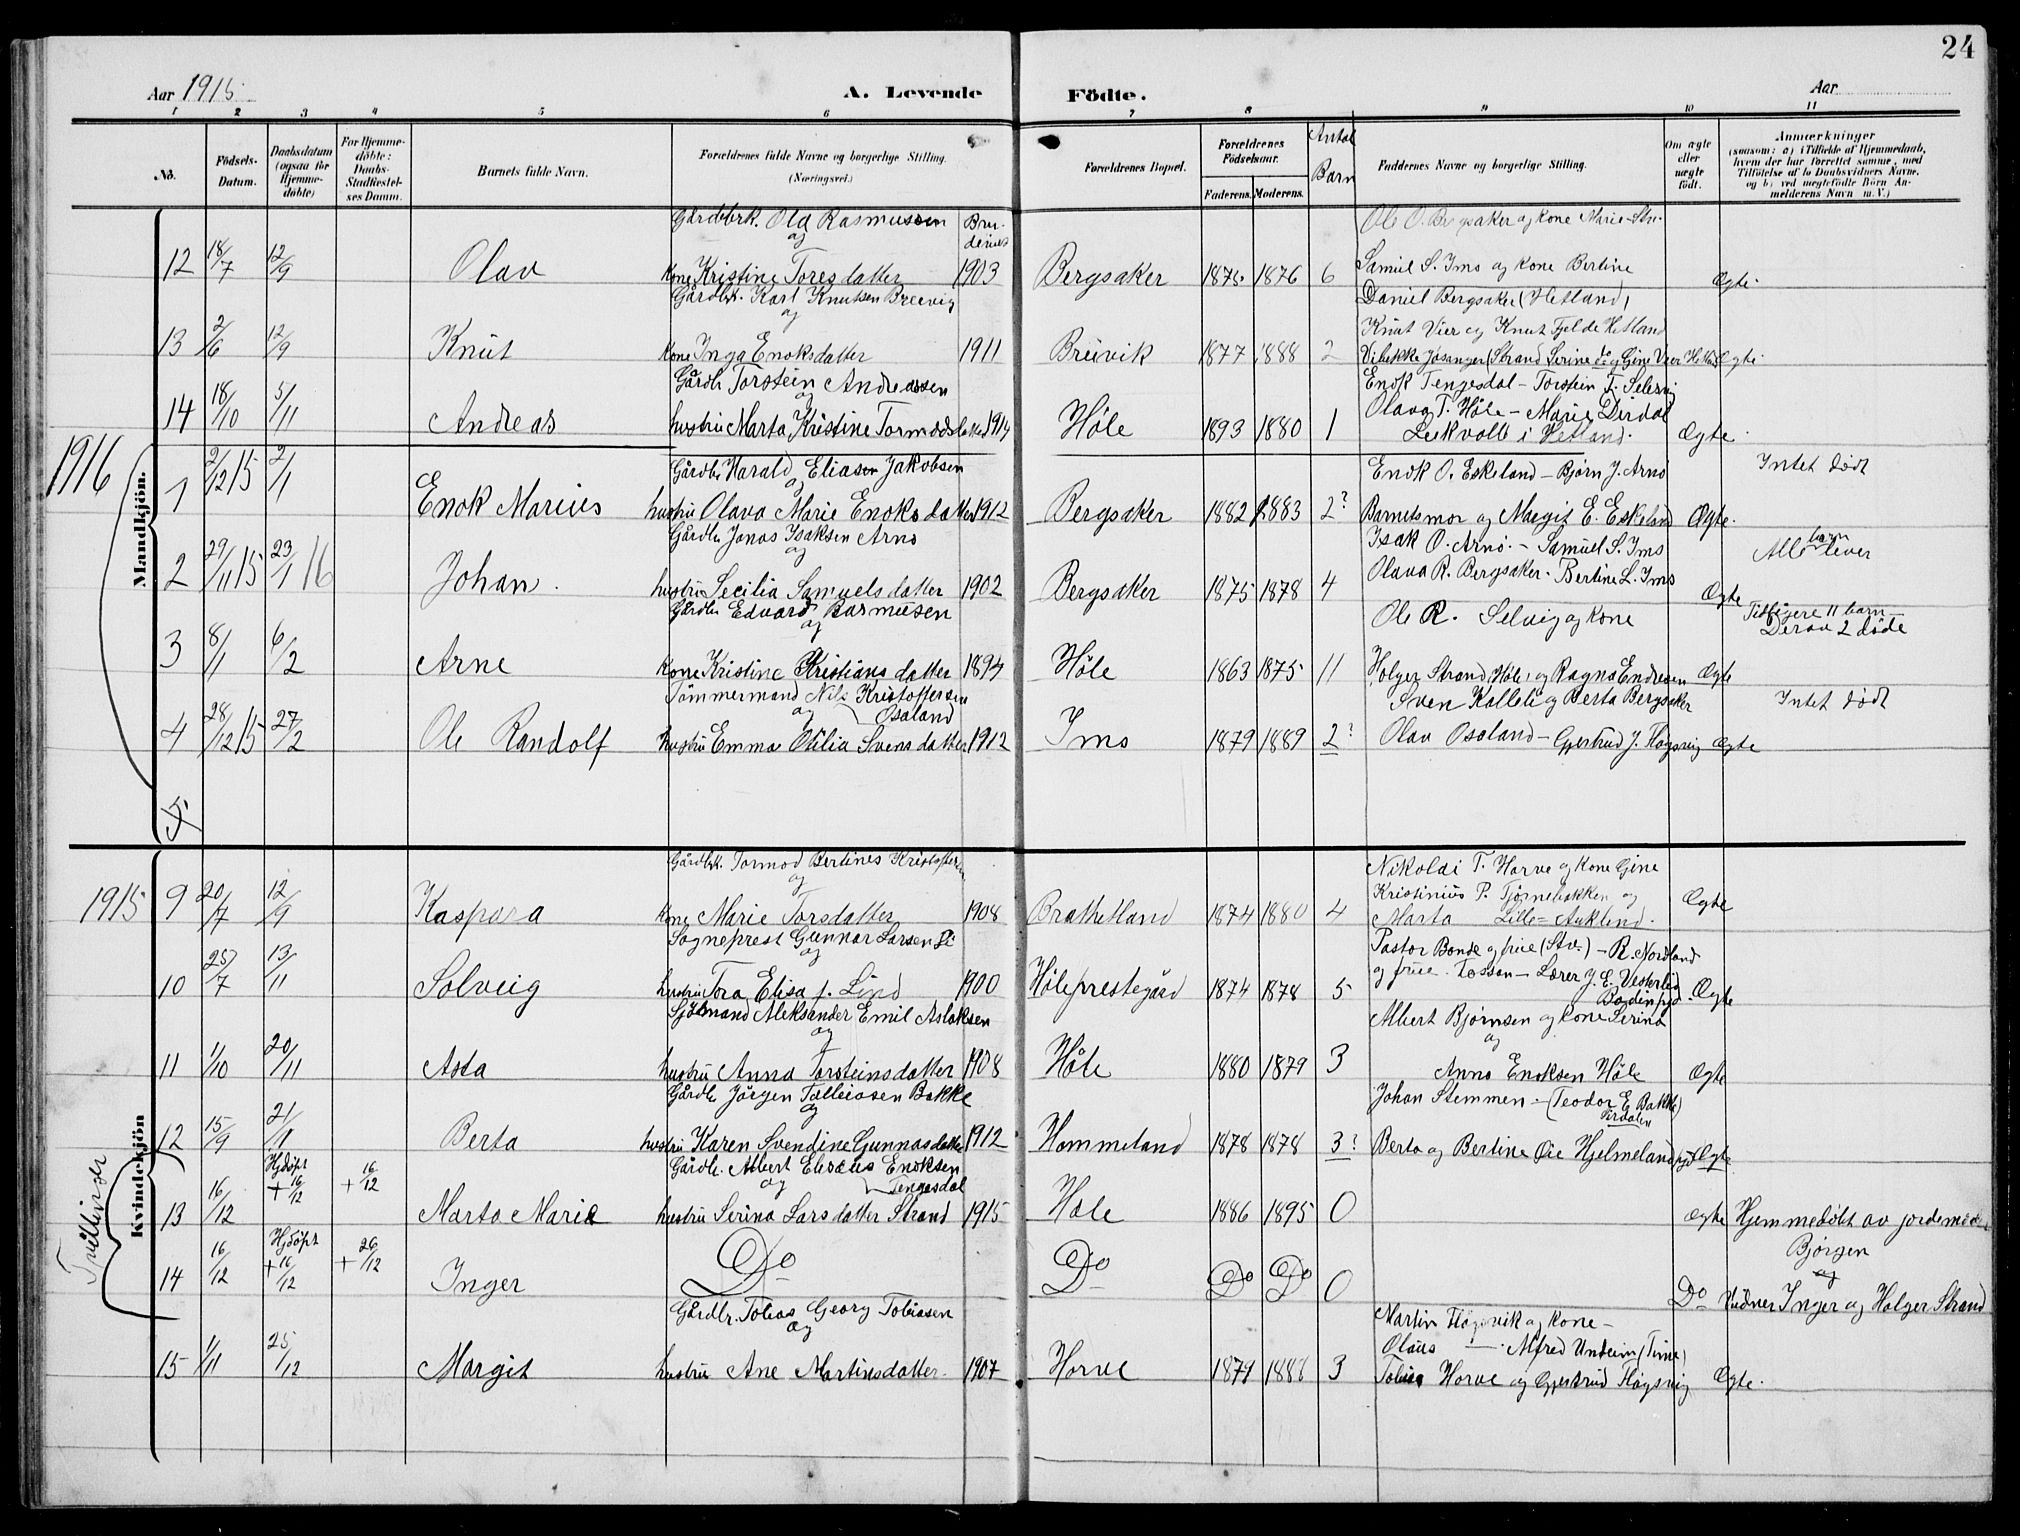 24
Aar 1915.
A. Levende Födte.
Aar
1 2 3 4 5 6 7 8 9 10 11
No.
Födsels-Datum.
Daabsdatum (ogsaa for Hjemme-döbte)
For Hjemme-döbte: Daabs-Stadfæstelses Datum.
Barnets fulde Navn.
Forældrenes fulde Navne og borgerlige Stilling. (Næringsvei.)
Forældrenes Bopæl.
Forældrenes Födselsaar.
Faderens. Moderens.
Antal Barn
Faddernes Navne og borgerlige Stilling.
Om ægte eller uægte födt.
Anmærkninger
(saasom: a) i Tilfælde af Hjemmedaab, hvem der har forrettet samme, med Tilföielse af to Daabsvidners Navne, og b) ved uægtefödte Börn Anmelderens Navn m. V.)
Mandkjön.
Gårdbrk. Ola Rasmussen
og
Ole O. Bergsaker og kone Marie
12 18/7 12/9 Olav kone Kristine Toresdatter 1903 Bergsaker 1875 1876 6 Samuel S. Ims og kone Bertine Ægte.
Gårdbr. Karl Knutsen Breivig
og
Daniel Bergsaker (Hetland)
Knut Vier og Knut Fjelde Hetland
13 2/6 12/9 Knut kone Inga Enoksdatter 1911 Breivik 1877 1888 2 Ægte.
Gårdbr Torstein Andreassen
og
Enok Tengesdal - Torstein T. Selvig
Olava T. Høle - Marie Dirdal
14 18/10 5/11 Andreas hustru Marta Kristine 1914 Høle 1893 1880 1 i Hetland. Ægte
1916
Gårdbr Harald Eliasen Jakobsen
og
Enok O. Eskeland - Bjørn J. Arnø
Intet dødt
1 2/12 15 2/1 Enok Marius hustru Olava Marie Enoksdatter 1912 Bergsaker 1882 1883 2? Barnets mor og Margit E. Eskeland Ægte.
Gårdbr Jonas Isaksen Arnø
og
Isak O. Arnø. - Samuel S. Ims
Alle barn lever
2 29/11 15 23/1 16 Johan. hustru Secilia Samuelsdatter 1902 Bergsaker 1875 1878 4 Olava R. Bergsaker - Bertine L. Ims Ægte
Gårdbr Edvard Rasmussen
og
Ole R. Selvig og kone
Tidligere 11 barn
Derav 2 døde
3 8/1 6/2 Arne kone Kristine Kristiansdatter 1894 Høle 1863 1875 11 Holger Strand, Høle, og Ragna Endresen Ægte
Tømmermand Nils Kristoffersen Osaland
og
Sven Kalleli og Berta Bergsaker
Intet dødt
4 28/12 15 27/2 Ole Randolf hustru Emma Otilia Svensdatter 1912 Ims 1879 1889 2? Olav Osaland - Gjertrud J. Høgsvig Ægte
5
Kvindekjön
1915
Gårdbrk. Tormod Bertines Kristoffersen
og
Nikolai T. Horve og kone Gine
Kristinius P. Tjørnebakken og
9 20/7 12/9 Kaspara kone Marie Torsdatter 1908 Brathetland 1874 1880 4 Marta Lille= Aukland. Ægte
Sogneprest Gunnar Larsen Li
og
Pastor Bonde og frue - R. Nordland
og frue. Tosson - Lærer J. E. Vesterlid
10 25/7 13/11 Solveig hustru Tora Elisa f. Lind 1900 Høle prestegård 1874 1878 5 Ægte
Sjömand Aleksander Emil Aslaksen
og
Albert Bjørnsen og kone Serina
og
11 1/10 20/11 Asta hustru Anna Torsteinsdatter 1908 Høle 1880 1879 3 Anna Enoksen Høle Ægte
Gårdbr Jörgen Tolleivsen Bakke
og
Johan Stemmen - (Teodor E. Bakke) Dirdalen
12 15/9 21/11 Berta hustru Karen Svendine Gunnarsdatter 1912 Hommeland 1878 1878 3? Berta og Bertine Øie Hjelmeland Ægte
Tvillinger
Gårdbr. Albert Elisæus Enoksen Tengesdal
og
13 16/12 Hjdöpt + 16/12 + 16/12 Marta Marie hustru Serina Larsdatter Strand 1915 Høle 1886 1895 0 Ægte Hjemmedøbt av jordemoder
Bjørgen
og
14 16/12 Hjdöpt + 16/12 + 26/12 Inger Do Do Do Do 0 Do Vidner Inger og Holger Strand
Gårdbr. Tobias Georg Tobiasen
og
Martin Høgsvik og kone -
Olaus - Alfred Undeim (Time)
15 1/11 25/12 Margit hustru Ane Martinsdatter 1907 Horve 1879 1888 3 Tobias Horve og Gjertrud Høgsvig Ægte.